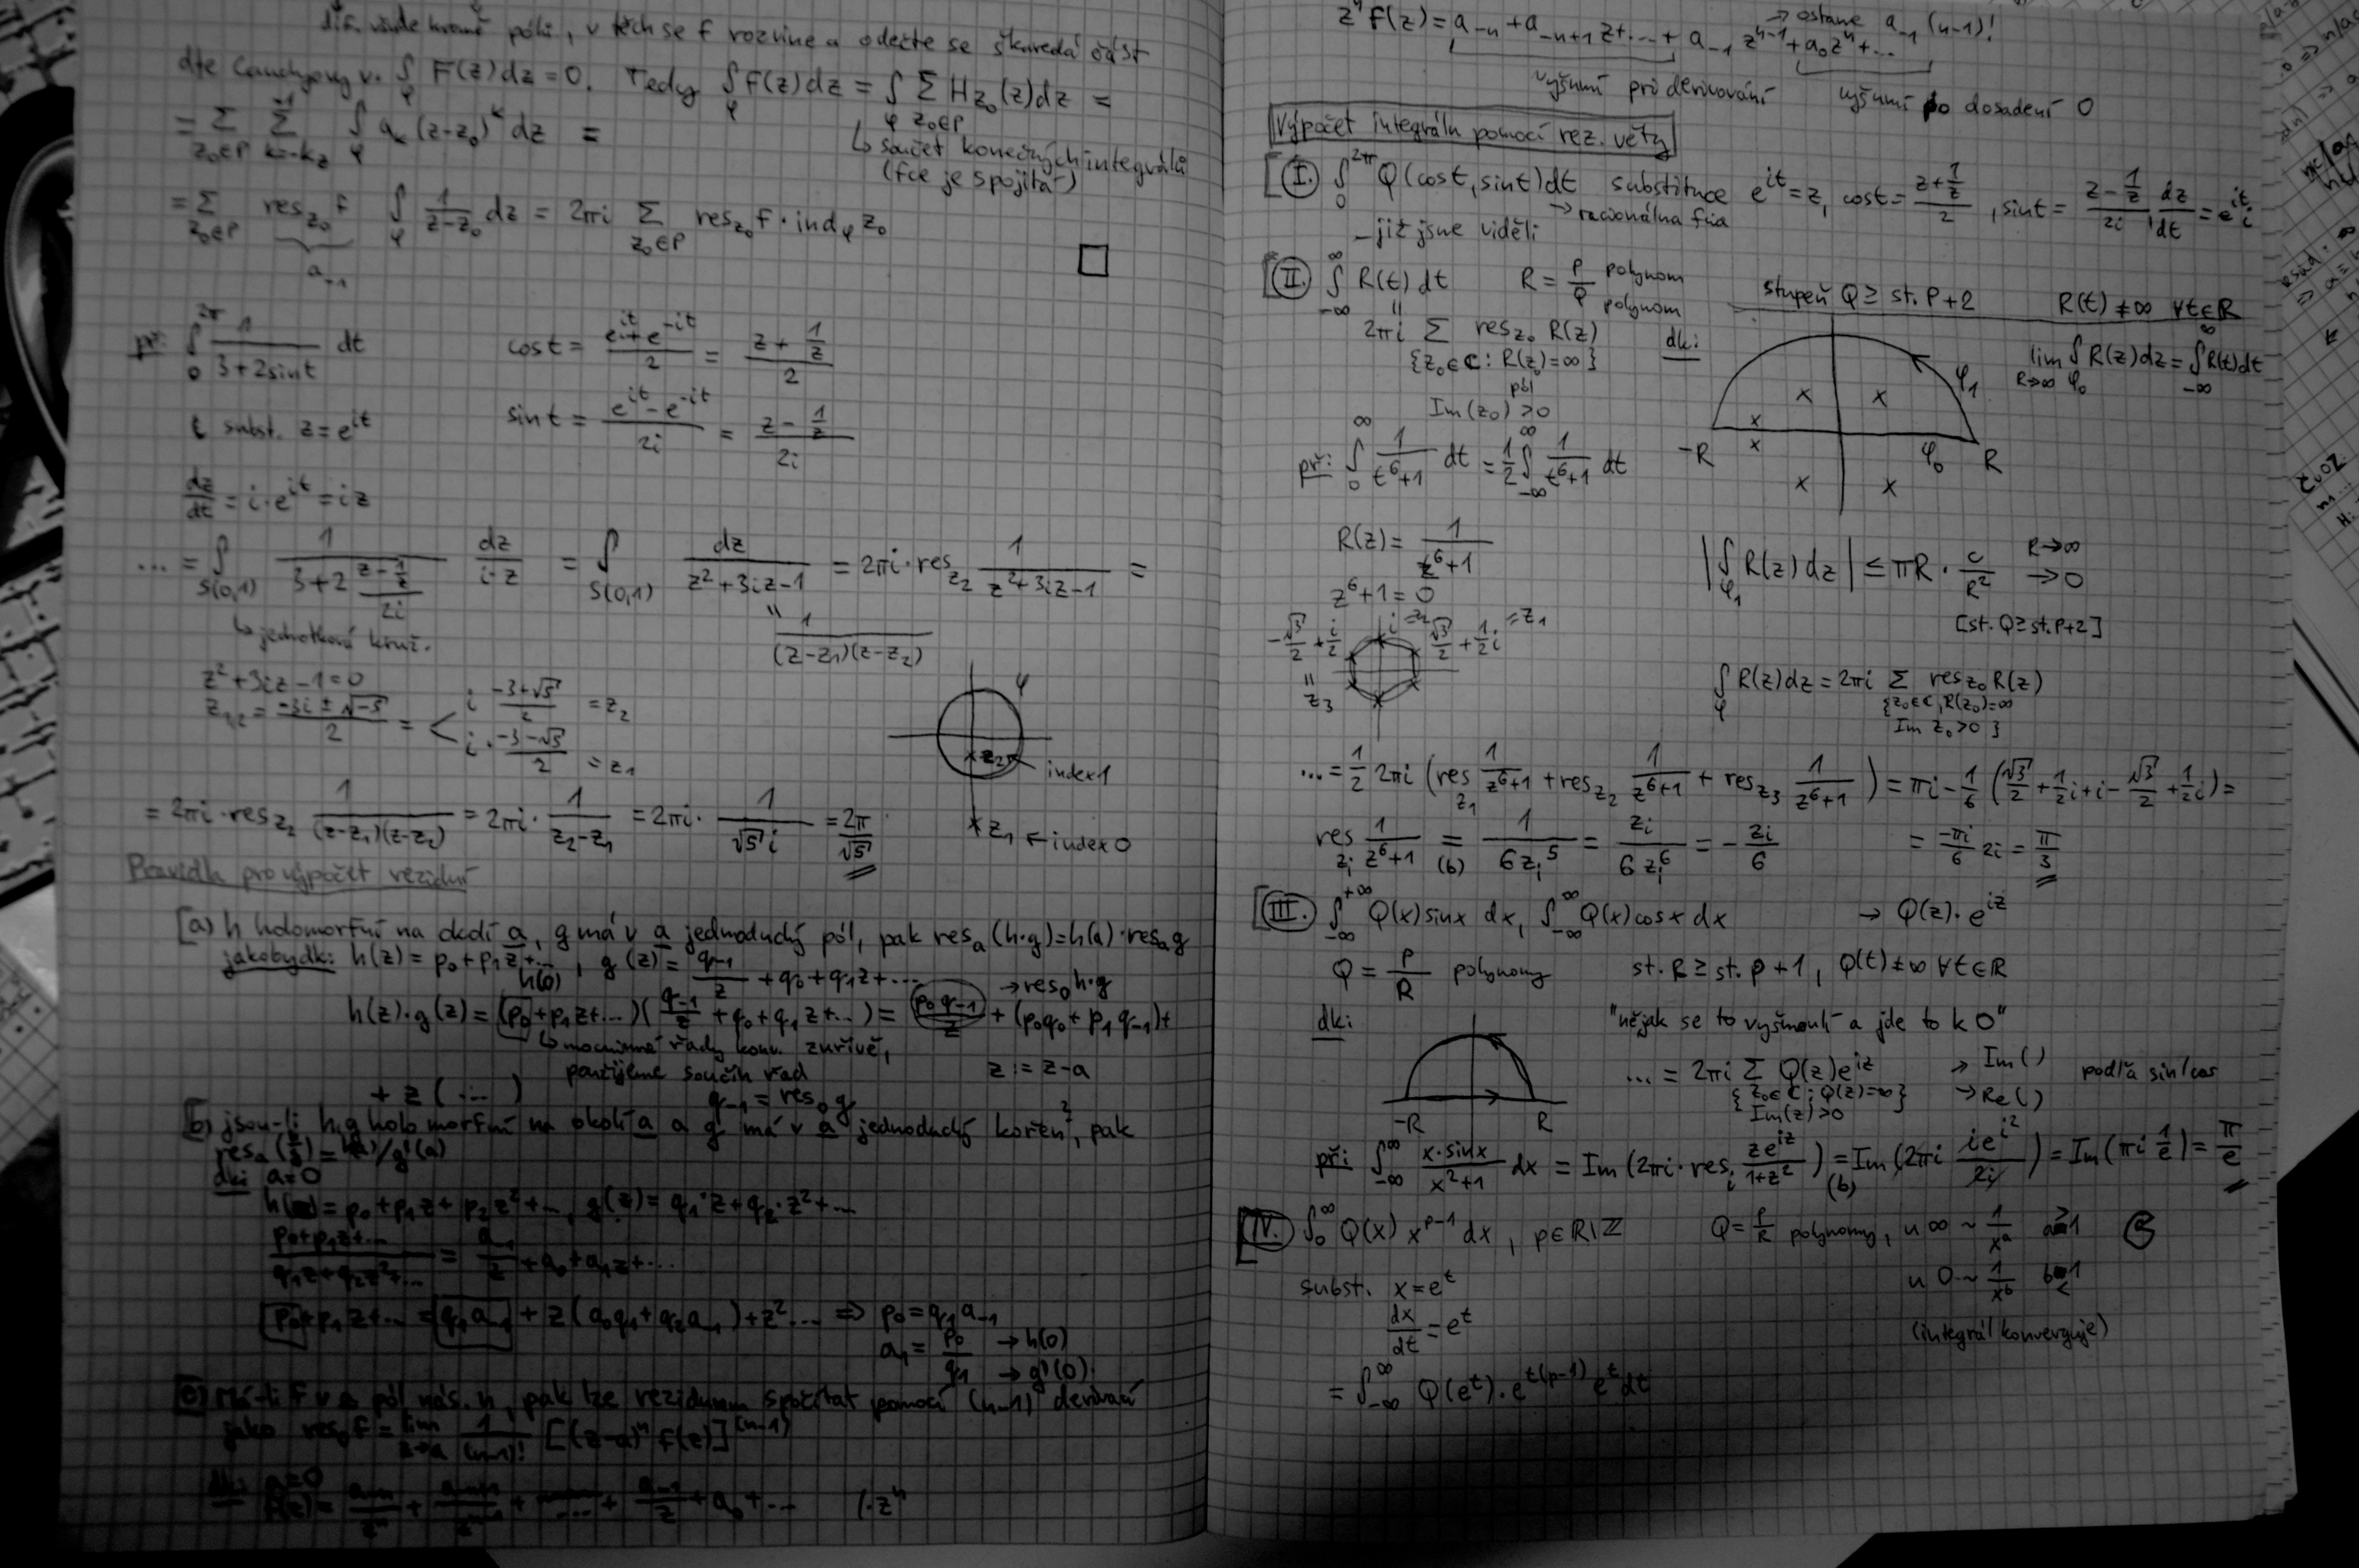 dif. všude kromě pólů, v těch se f rozvine a odečte se škaredá část
dle Cauchyovy v. ∫_φ F(z)dz = 0. Tedy ∫_φ f(z)dz = ∫_φ Σ_{z₀∈P} H_{z₀}(z)dz =
↳ součet konečných integrálů
(fce je spojitá)
= Σ_{z₀∈P} Σ_{k=-k_z}^{-1} ∫_φ a_k (z-z₀)^k dz =
= Σ_{z₀∈P} res_{z₀} f ∫_φ 1/(z-z₀) dz = 2πi Σ_{z₀∈P} res_{z₀} f · ind_φ z₀
a_{-1}
□
př: ∫_0^{2π} 1/(3+2sint) dt cost = (e^{it}+e^{-it})/2 = (z+1/z)/2
subst. z = e^{it} sint = (e^{it}-e^{-it})/2i = (z-1/z)/2i
dz/dt = i·e^{it} = iz
... = ∫_{S(0,1)} 1/(3+2 (z-1/z)/2i) dz/(i·z) = ∫_{S(0,1)} dz/(z²+3iz-1) = 2πi·res_{z₂} 1/(z²+3iz-1) =
↳ jednotková kruž.
" 1/((z-z₁)(z-z₂))
z²+3iz-1=0
z_{1,2} = (-3i ± √-5)/2 = < i (-3+√5)/2 = z₂
i·(-3-√5)/2 = z₁
φ
×z₂ index 1
×z₁ ← index 0
= 2πi·res_{z₂} 1/((z-z₁)(z-z₂)) = 2πi· 1/(z₂-z₁) = 2πi· 1/(√5 i) = 2π/√5
Pravidla pro výpočet reziduí
(a) h holomorfní na okolí a, g má v a jednoduchý pól, pak res_a(h·g) = h(a)·res_a g
jakobydk: h(z) = p₀+p₁z+..., g(z) = q_{-1}/z + q₀+q₁z+....
h(0)
→ res₀ h·g
h(z)·g(z) = (p₀+p₁z+...)(q_{-1}/z + q₀+q₁z+...) = p₀q_{-1}/z + (p₀q₀+p₁q_{-1})+
↳ mocninné řady konv. zuřivě,
použijeme součin řad z := z-a
+ z(...) q_{-1} = res₀ g
(b) jsou-li h,g holomorfní na okolí a a g má v a jednoduchý kořen, pak
res_a(h/g) = h(a)/g'(a)
dk: a=0
h(z) = p₀+p₁z+p₂z²+..., g(z) = q₁·z+q₂·z²+...
(p₀+p₁z+...)/(q₁z+q₂z²+...) = a_{-1}/z + a₀+a₁z+...
p₀+p₁z+... = q₁a_{-1} + z(a₀q₁+q₂a_{-1})+z²... ⇒ p₀=q₁a_{-1}
a_{-1} = p₀/q₁ → h(0)
→ g'(0)
(c) Má-li f v a pól nás. n, pak lze reziduum spočítat pomocí (n-1) derivací
jako res_a f = lim_{z→a} 1/(n-1)! [(z-a)^n f(z)]^{(n-1)}
dk: a=0
f(z) = a_{-n}/z^n + ... + a_{-1}/z + a₀+... /·z^n
z^n f(z) = a_{-n}+a_{-n+1}z+...+ a_{-1}z^{n-1}+a₀z^n+...
→ ostane a_{-1}(n-1)!
vyšumí pri derivování vyšumí po dosadení 0
Výpočet integrálu pomocí rez. věty
I. ∫_0^{2π} Q(cost, sint)dt substituce e^{it}=z, cost = (z+1/z)/2, sint = (z-1/z)/2i, dz/dt = e^{it}i
→ racionálna fcia
- již jsme viděli
II. ∫_{-∞}^{∞} R(t)dt R = P/Q polynom polynom stupeň Q ≥ st. P+2 R(t)≠∞ ∀t∈R
" 2πi Σ res_{z₀} R(z)
{z₀∈C: R(z₀)=∞}
pól
Im(z₀)>0
dk:
-R φ₀ R φ₁
lim_{R→∞} ∫_{φ₀} R(z)dz = ∫_{-∞}^{∞} R(t)dt
př: ∫_0^∞ 1/(t⁶+1) dt = 1/2 ∫_{-∞}^{∞} 1/(t⁶+1) dt
R(z) = 1/(z⁶+1)
|∫_{φ₁} R(z)dz| ≤ πR· c/R² R→∞ →0
[st. Q≥st. P+2]
z⁶+1=0
-√3/2 + i/2 i=z₂ √3/2 + 1/2 i =z₁
" z₃
∫_φ R(z)dz = 2πi Σ res_{z₀} R(z)
{z₀∈C, R(z₀)=∞
Im z₀>0}
... = 1/2 2πi (res_{z₁} 1/(z⁶+1) + res_{z₂} 1/(z⁶+1) + res_{z₃} 1/(z⁶+1)) = πi - 1/6 (√3/2 + 1/2 i + i - √3/2 + 1/2 i) =
res_{z_i} 1/(z⁶+1) =(b) 1/(6z_i⁵) = z_i/(6z_i⁶) = - z_i/6 = -πi/6 2i = π/3
III. ∫_{-∞}^{+∞} Q(x)sinx dx, ∫_{-∞}^{∞} Q(x)cosx dx → Q(z)·e^{iz}
Q = P/R polynomy st. R ≥ st. P+1, Q(t)≠∞ ∀t∈R
dk: "nějak se to vyšmoulí a jde to k 0"
-R R
... = 2πi Σ Q(z)e^{iz} → Im() podľa sin/cos
{z₀∈C; Q(z)=∞} → Re()
Im(z)>0
př: ∫_{-∞}^{∞} x·sinx/(x²+1) dx = Im(2πi·res_i ze^{iz}/(1+z²)) =(b) Im(2πi ie^{i²}/2i) = Im(πi 1/e) = π/e
IV. ∫_0^∞ Q(x) x^{p-1} dx, p∈R\Z Q = P/R polynomy, u ∞ ~ 1/x^a a>1
u 0 ~ 1/x^b b<1
subst. x = e^t
dx/dt = e^t
(integrál konverguje)
= ∫_{-∞}^{∞} Q(e^t)·e^{t(p-1)} e^t dt